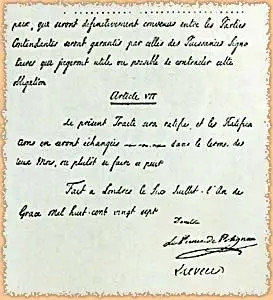 paix, qui seront définitivement convenues entre les Parties
Contendantes seront garantis par celles des Puissances Signa
taires qui jugeront utile ou possible de contracter cette
obligation
Article VII
Le présent Traité sera ratifié, et les Ratifica
tions en seront échangées dans le terme de
deux Mois, ou plutôt si faire se peut
Fait à Londres le Six Juillet, l'An de
Grace Mil huit-cent vingt sept
Dudley
Le Prince de Polignac
Lieven